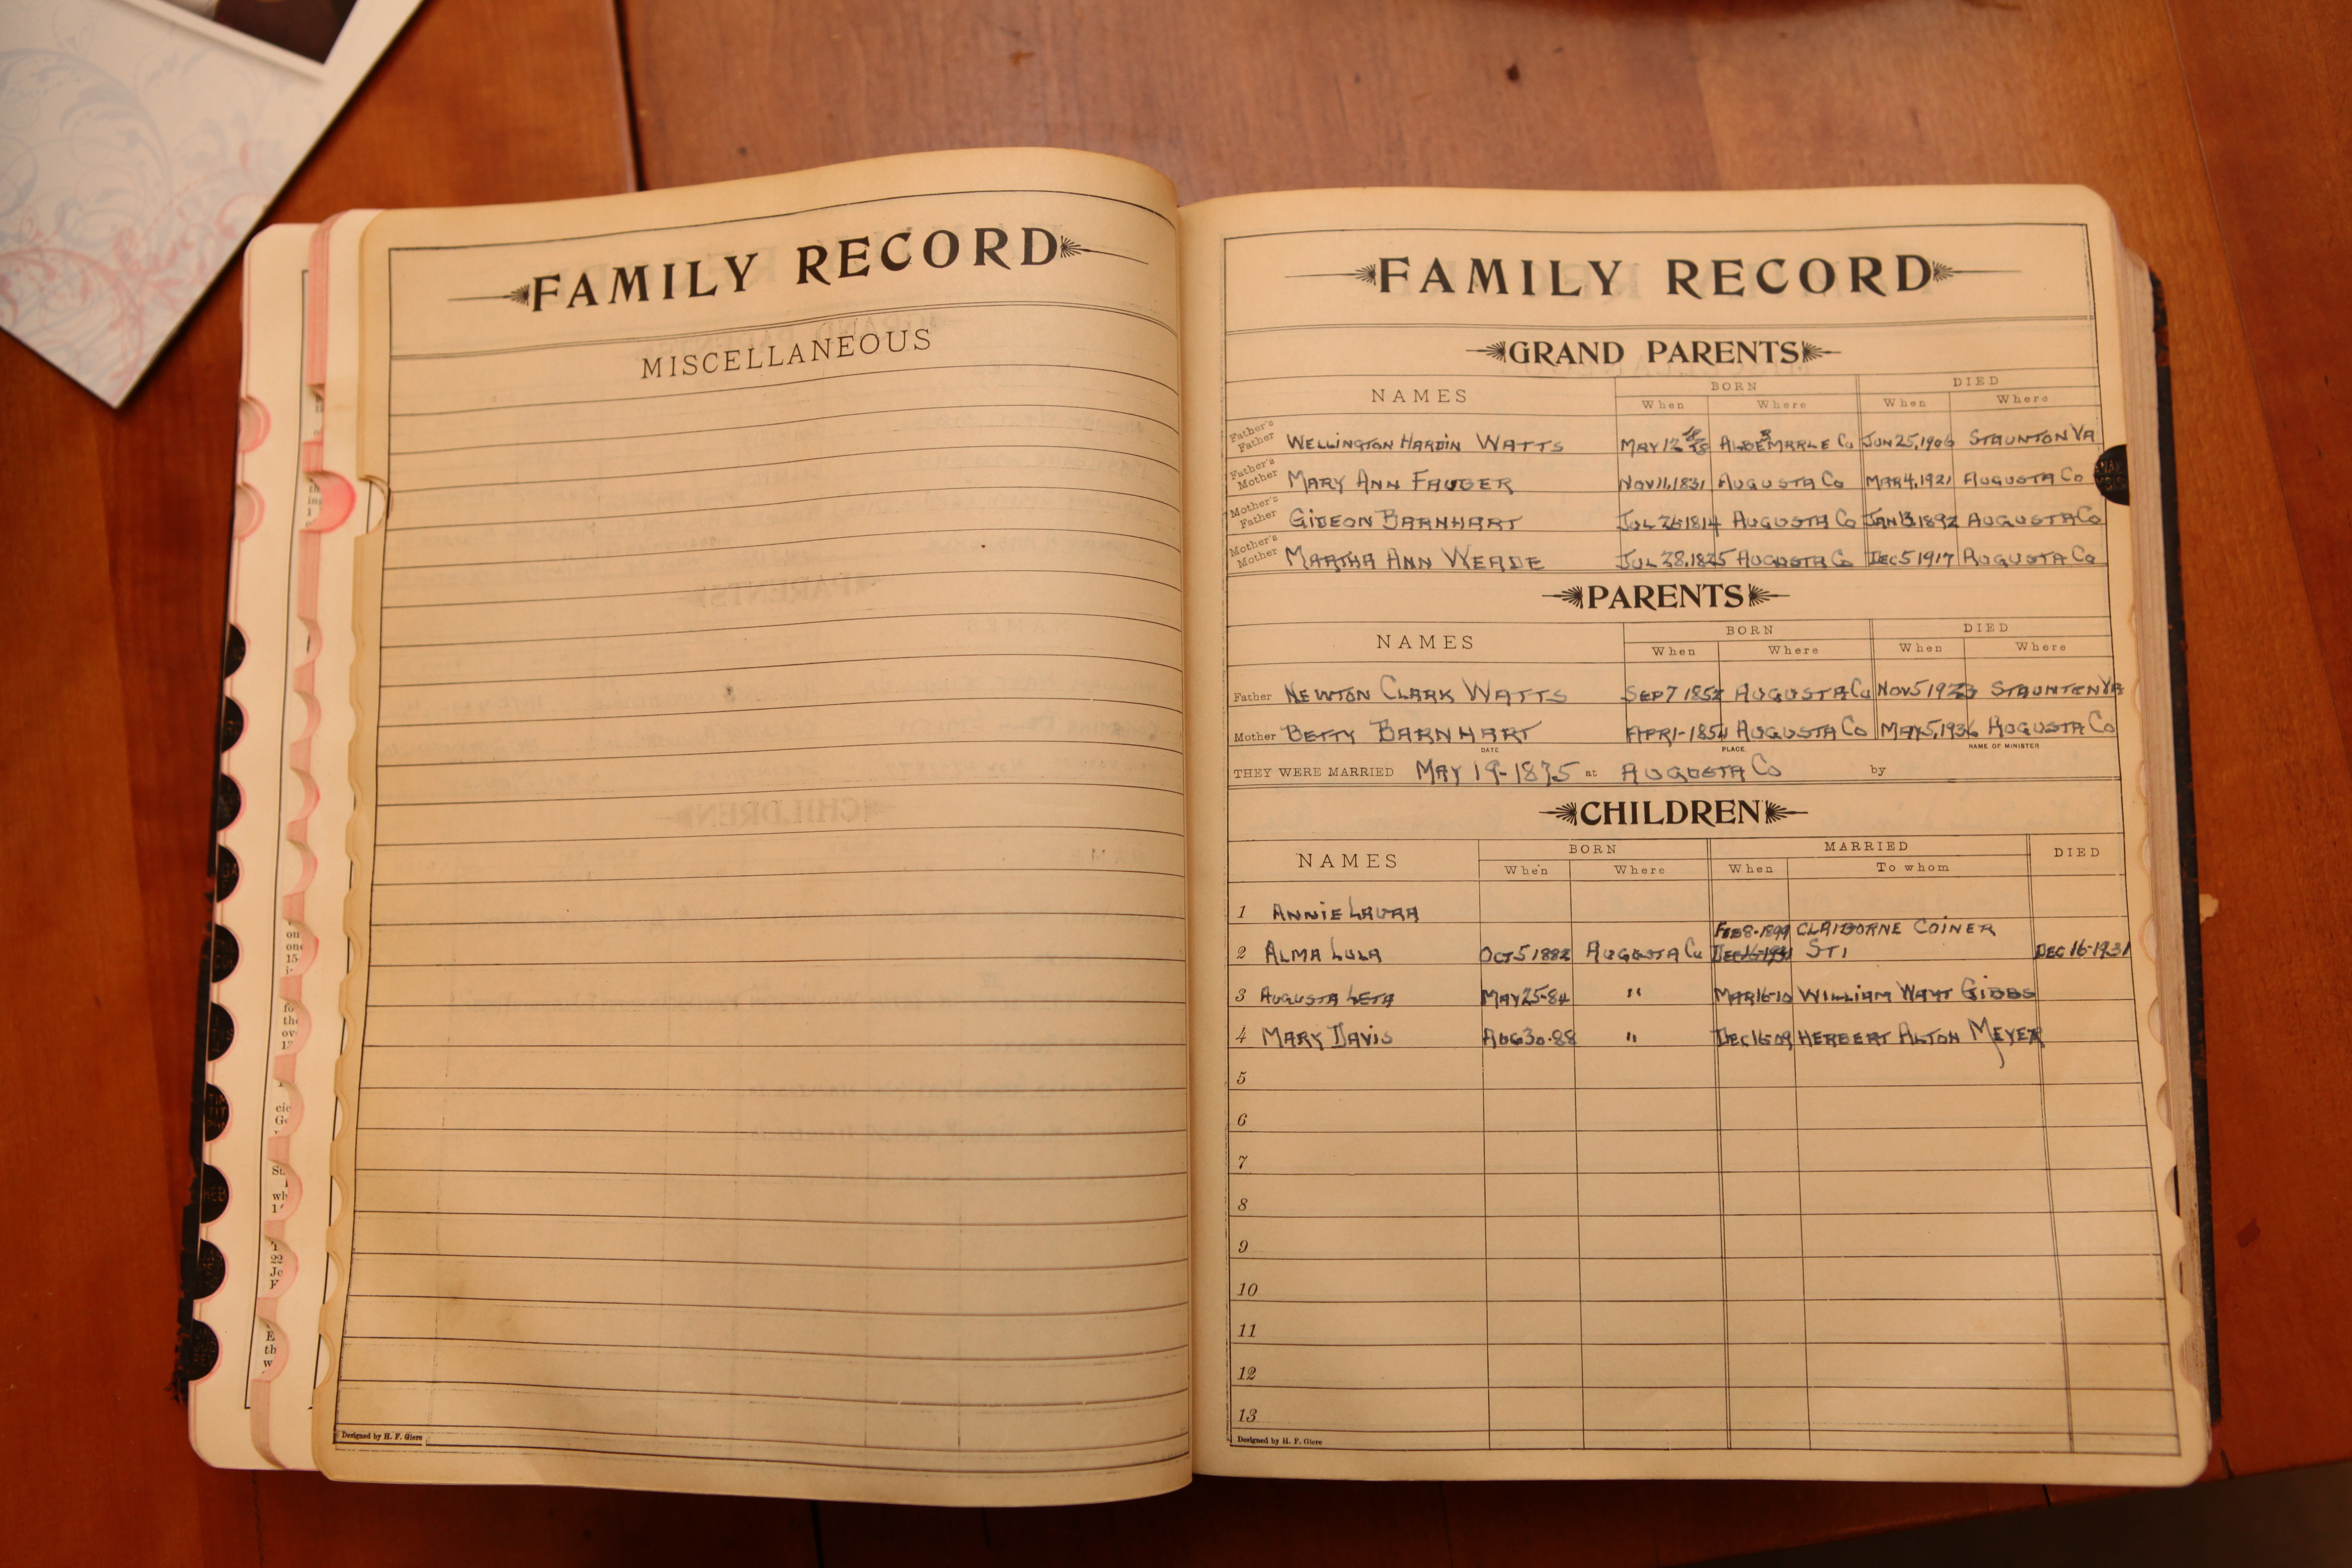 FAMILY RECORD
MISCELLANEOUS
Designed by H. F. Giere
FAMILY RECORD
GRAND PARENTS
NAMES BORN DIED
When Where When Where
Father's Father WELLINGTON HARDIN WATTS MAY 12 Co JUN 25, 1906 STAUNTON VA
Father's Mother MARY ANN FAUBER NOV 11, 1831 AUGUSTA Co MAR 4, 1921 AUGUSTA Co
Mother's Father GIDEON BARNHART JUL 26 1814 AUGUSTA Co JAN 13, 1892 AUGUSTA Co
Mother's Mother MARTHA ANN WEADE JUL 28, 1825 AUGUSTA Co DEC 5 1917 AUGUSTA Co
PARENTS
NAMES BORN DIED
When Where When Where
Father NEWTON CLARK WATTS SEP 7 1852 AUGUSTA Co NOV 5 1923 STAUNTON VA
Mother BETTY BARNHART APR 1-1854 AUGUSTA Co MAY 5, 1936 AUGUSTA Co
DATE PLACE NAME OF MINISTER
THEY WERE MARRIED MAY 19-1875 at AUGUSTA Co by
CHILDREN
NAMES BORN MARRIED DIED
When Where When To whom
1 ANNIE LAURA
FEB 8-1899 CLAIBORNE COINER
2 ALMA LULA OCT 5 1882 AUGUSTA Co DEC 16-1931 ST1 DEC 16-1931
3 AUGUSTA LETA MAY 25-84 " MAR 16-10 WILLIAM WAYT GIBBS
4 MARY DAVIS AUG 30-88 " DEC 16-09 HERBERT ALTON MEYER
5
6
7
8
9
10
11
12
13
Designed by H. F. Giere